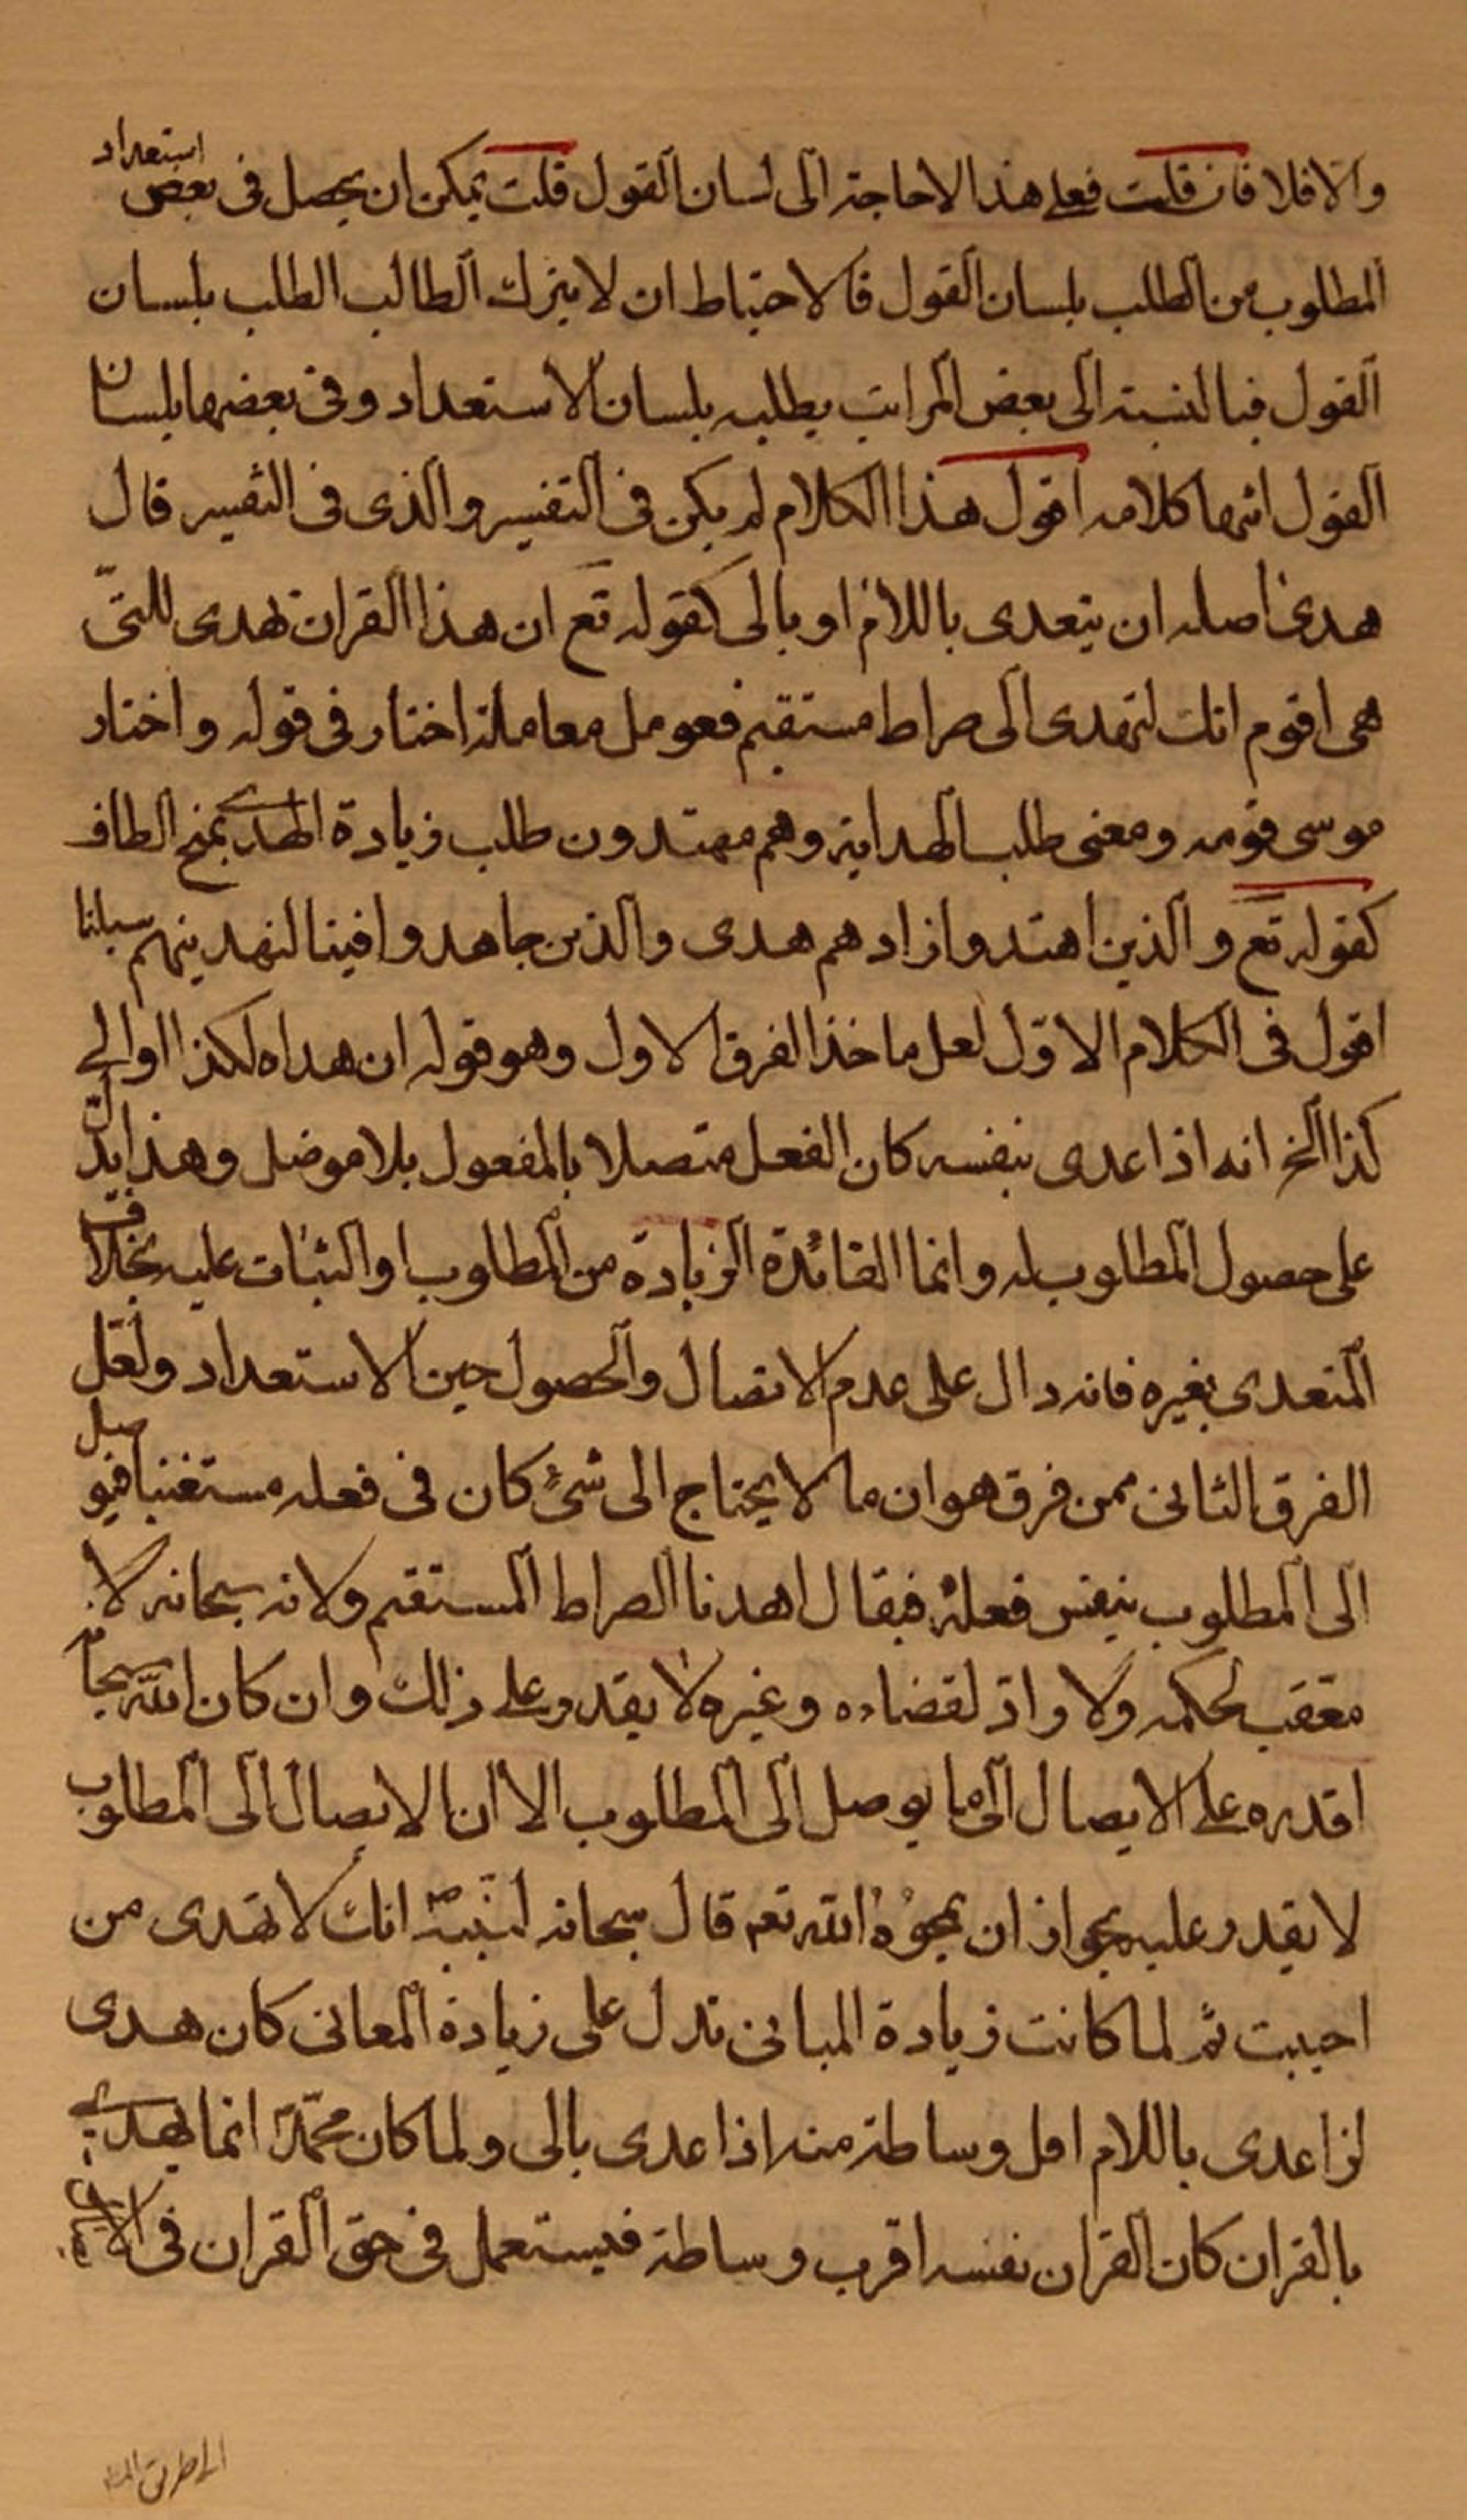 والا فلا فان قلت فعلى هذا لا حاجة الى لسان القول قلت يمكن ان يحصل فى بعض استعداد
المطلوب من الطلب بلسان القول فالاحتياط ان لا يترك الطالب الطلب بلسان
القول فبالنسبة الى بعض المراتب يطلبه بلسان الاستعداد وفى بعضها بلسان
القول انتها كلامه اقول هذا الكلام لم يكن فى التفسير والذى فى التفسير قال
هدى اصله ان يتعدى باللام او بالى كقوله تع ان هذا القران يهدى للتى
هى اقوم انك لتهدى الى صراط مستقيم فعومل معاملة اختار فى قوله واختار
موسى قومه ومعنى طلب الهداية وهم مهتدون طلب زيادة الهدى بمنح الطاف
كقوله تع والذين اهتدوا زادهم هدى والذين جاهدوا فينا لنهدينهم سبلنا
اقول فى الكلام الاول لعل ماخذ الفرق الاول وهو قوله ان هداه لكذا او الى
كذا الخ انه اذا عدى بنفسه كان الفعل متصلا بالمفعول بلا موصل وهذا يدل
على حصول المطلوب له وانما الفائدة الزيادة من المطلوب او الثبات عليه بخلاف
المتعدى بغيره فانه دال على عدم الاتصال والحصول حين الاستعداد ولعل
الفرق الثانى ممن فرق هو ان ما لا يحتاج الى شئ كان فى فعله مستغنيا فيوصل
الى المطلوب بنفس فعله فيقال اهدنا الصراط المستقيم ولانه سبحانه لا
معقب لحكمه ولا راد لقضاءه وغيره لا يقدر على ذلك وان كان الله سبحانه
اقدره على الايصال الى ما يوصل الى المطلوب الا ان الايصال الى المطلوب
لا يقدر عليه بجواز ان يمحوه الله تعم قال سبحانه لنبيه انك لا تهدى من
احببت ثم لما كانت زيادة المبانى تدل على زيادة المعانى كان هدى
اذا عدى باللام اقل وساطة منه اذا عدى بالى ولما كان محمد انما يهدى
بالقران كان القران نفسه اقرب وساطة فيستعمل فى حق القران فى